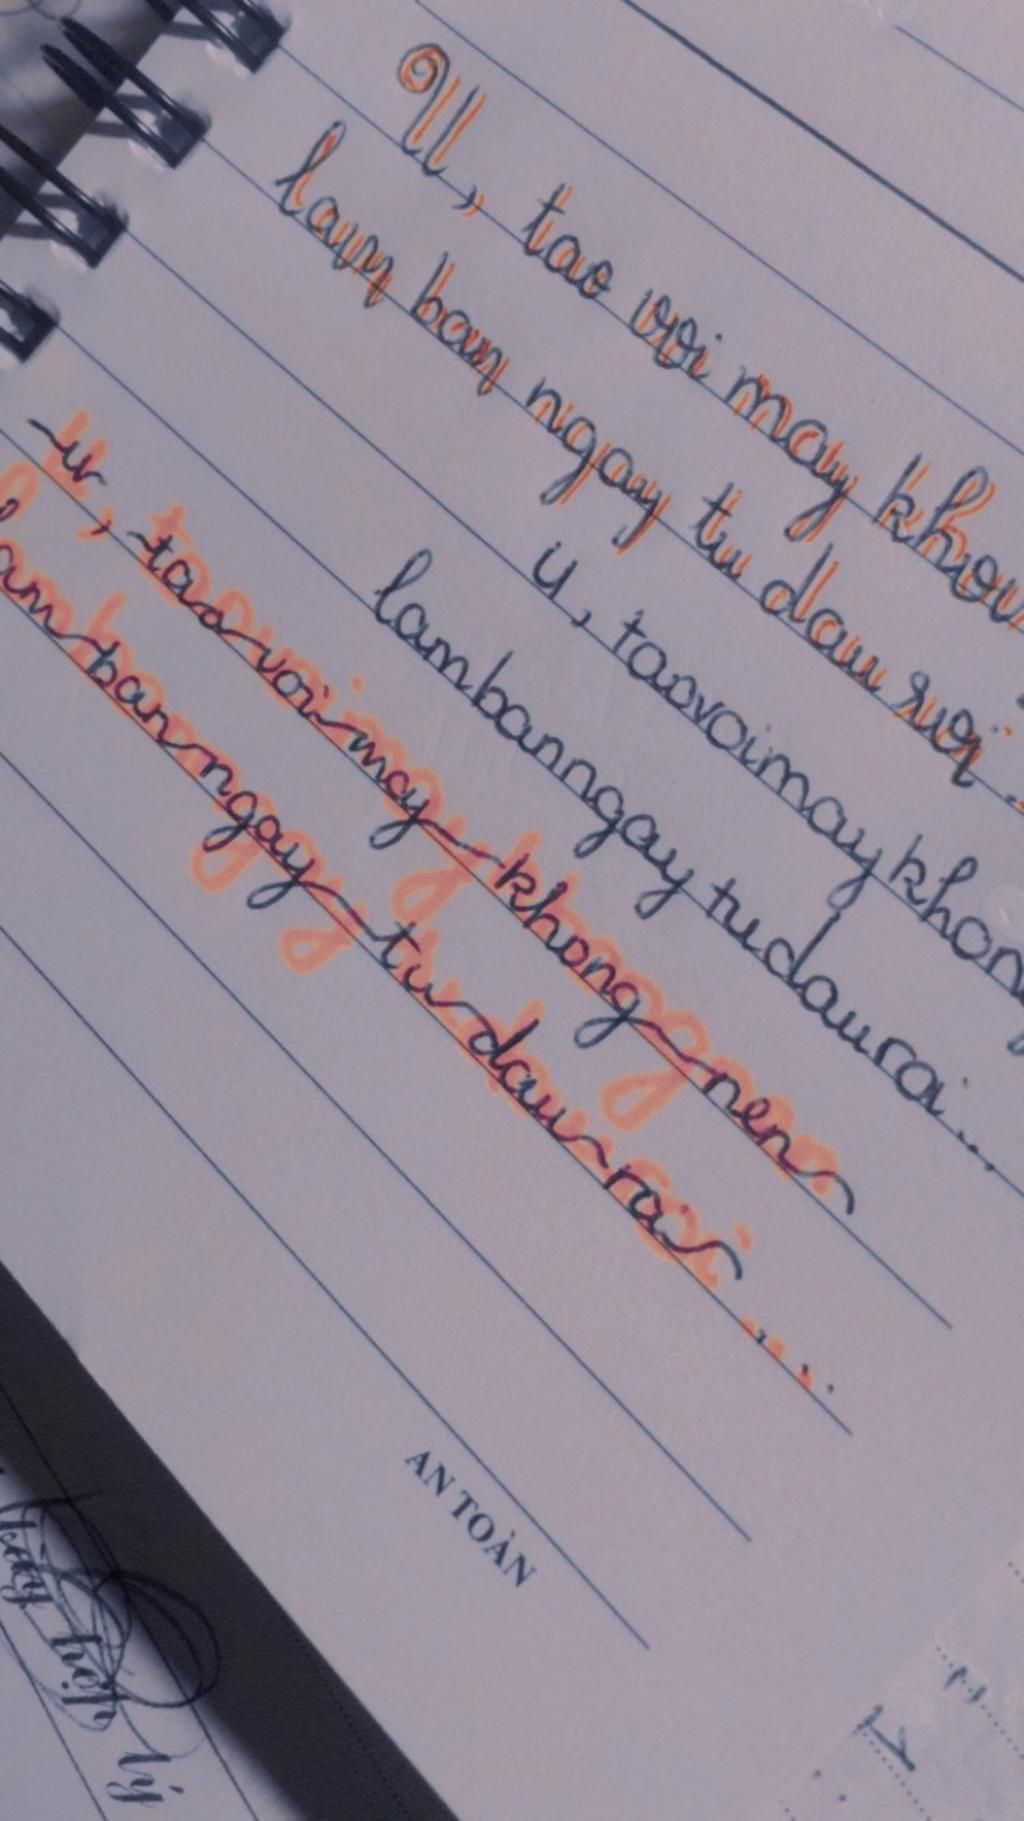 U, tao voi may khon
lam ban ngay tu dau roi ..
u, tao voi may khong
lam ban ngay tu dau roi ...
u, tao voi may khong nen
lam ban ngay tu dau roi ....
AN TOÀN
hợp lý